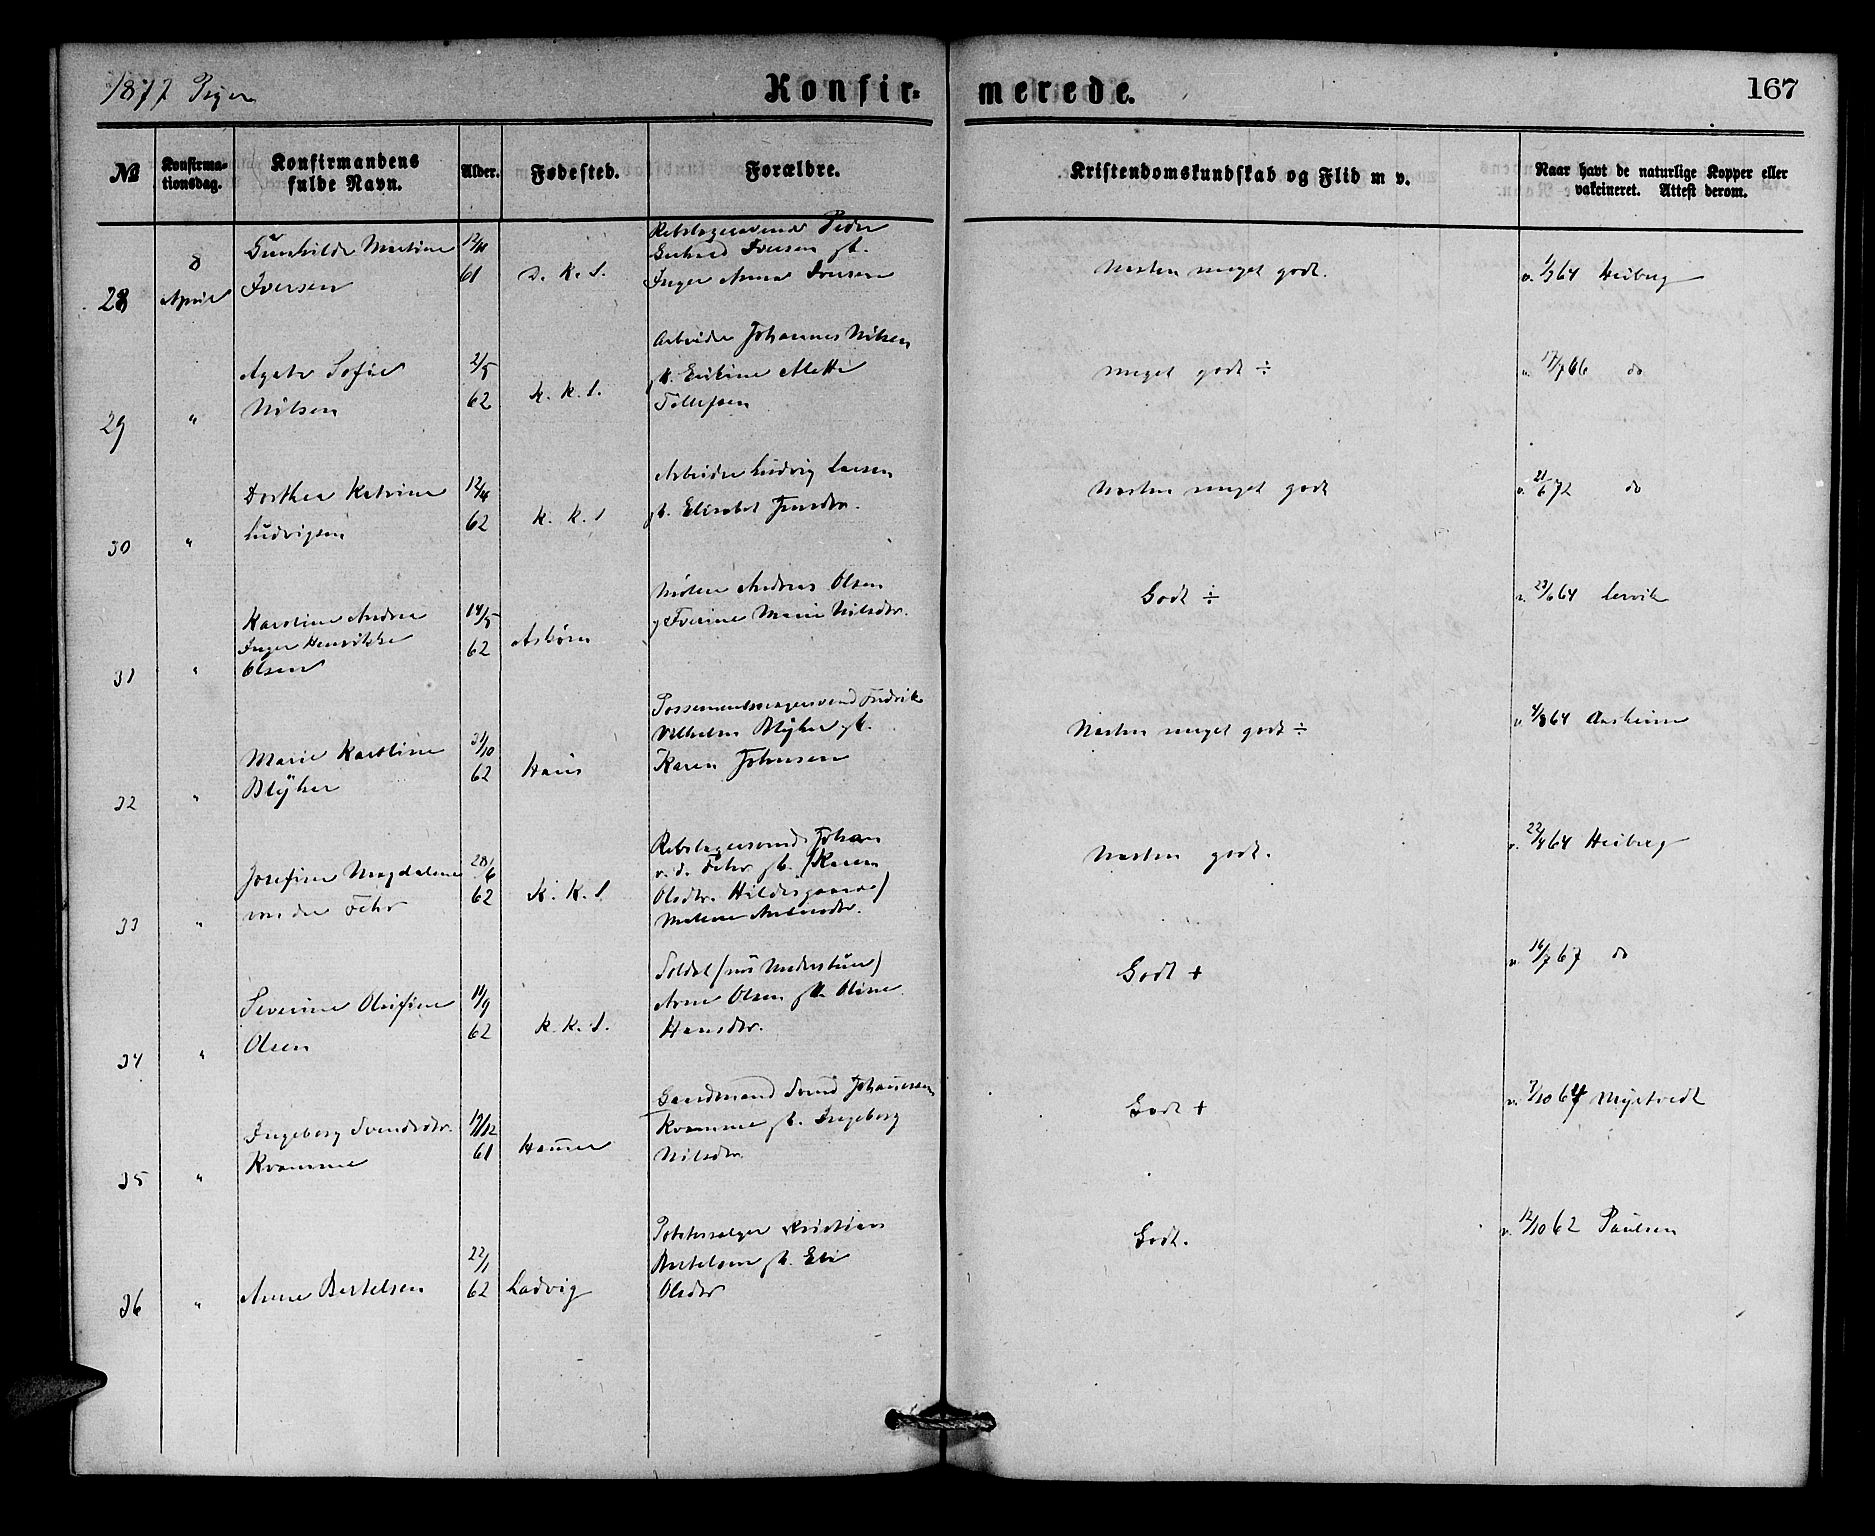 1877 Piger Konfir- merede. 167
No Konfirma-tionsdag. Konfirmandens fulde Navn. Alder. Fødested. Forældre. Kristendomskundskab og Flid m v. Naar havt de naturlige Kopper eller vakcineret. Attest derom.
Rebslagersvend Peder
8 Gunhilde Martine 12/11 Gerhard Iversen og h.
28 April Iversen 61 D. K. S. Inger Anna Iversen Næsten meget godt. v. 1/3 64 Heiberg
Arbeider Johannes Nilsen
Agate Sofie 2/5 og h. Erikine Mette meget godt ÷ v. 17/7 66 do
29 " Nilsen 62 K. K. S. Tollefsen
Arbeider Ludvig Larsen
Dorthea Katrine 12/4 og h. Elisabet Jensdtr. Næsten meget godt v. 21/6 72 do
30 " Ludvigsen 62 K. K. S
Møller Andreas Olsen Godt ÷ v. 23/6 64 Lervik
Karoline Andrea 14/5 og Iverine Marie Nilsdtr.
Inger Henrikke 62 Askøen
31 " Olsen
Possementmagersvend Fredrik
Vilhelm Blÿher og h. Næsten meget godt ÷ v. 4/8 64 Aasheim
Marie Karoline 31/10 Karen Johnsen
32 " Blÿher 62 Haus
Rebslagersvend Johan
Josefine Magdalene 28/6 v. d. Fehr og h. (Karen Næsten godt. v. 22/4 64 Heiberg
von der Fehr 62 K. K. S Olsdtr. Hildesgaard)
33 " Malene Andersdtr.
Soldat (nu Murerstuer)
Severine Olufine 11/9 Arne Olsen og h. Oline Godt + v. 16/7 67 do
34 " Olsen 62 K. K. S. Hansdtr.
Gaardmand Svend Johannesen
Ingeborg Svendsdtr. 19/12 Kvamme og h. Ingeborg Godt + v. 7/10 64 Myrtvedt
35 " Kvamme 61 Hammer Nilsdtr.
Potetessælger Kristian
22/1 Bertelsen og h. Eli Godt. v. 12/10 62 Paulsen
36 " Anne Bertelsen 62 Ladvig Olsdtr